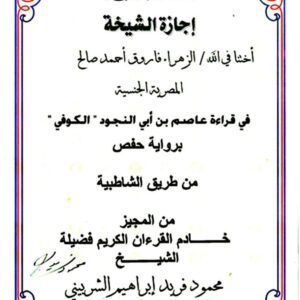 إجازة الشيخة
أختنا في الله / الزهراء فاروق أحمد صالح
المصرية الجنسية
في قراءة عاصم بن أبي النجود "الكوفي"
برواية حفص
من طريق الشاطبية
من المجيز
خادم القرءان الكريم فضيلة
الشيخ
محمود فريد إبراهيم الشربيني